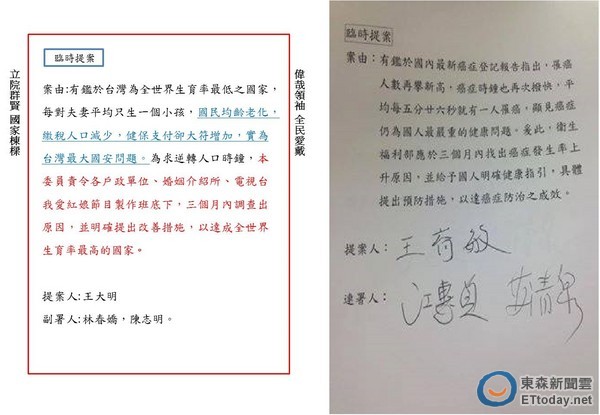 臨時提案
立院群賢 國家棟樑
偉哉領袖 全民愛戴
案由:有鑑於台灣為全世界生育率最低之國家，
每對夫妻平均只生一個小孩，國民均齡老化，
繳稅人口減少，健保支付卻大符增加，實為
台灣最大國安問題。為求逆轉人口時鐘，本
委員責令各户政單位、婚姻介紹所、電視台
我愛紅娘節目製作班底下，三個月內調查出
原因，並明確提出改善措施，以達成全世界
生育率最高的國家。
提案人:王大明
副署人:林春嬌，陳志明。
臨時提案
案由：有鑑於國內最新癌症登記報告指出，罹癌
人數再攀新高，癌症時鐘也再次撥快，平
均每五分廿六秒就有一人罹癌，顯見癌症
仍為國人最嚴重的健康問題。爰此，衛生
福利部應於三個月內找出癌症發生率上
升原因，並給予國人明確健康指引，具體
提出預防措施，以達癌症防治之成效。
提案人：王育敏
連署人：江惠貞 蘇清泉
東森新聞雲
ETtoday.net